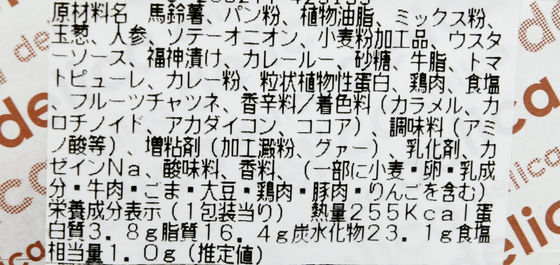 原材料名 馬鈴薯、パン粉、植物油脂、ミックス粉、
玉葱、人参、ソテーオニオン、小麦粉加工品、ウスタ
ーソース、福神漬け、カレールー、砂糖、牛脂、トマ
トピューレ、カレー粉、粒状植物性蛋白、鶏肉、食塩
、フルーツチャツネ、香辛料／着色料（カラメル、カ
ロチノイド、アカダイコン、ココア）、調味料（アミ
ノ酸等）、増粘剤（加工澱粉、グァー）、乳化剤、カ
ゼインＮａ、酸味料、香料、（一部に小麦・卵・乳成
分・牛肉・ごま・大豆・鶏肉・豚肉・りんごを含む）
栄養成分表示（１包装当り） 熱量２５５Ｋｃａｌ蛋
白質３．８ｇ脂質１６．４ｇ炭水化物２３．１ｇ食塩
相当量１．０ｇ（推定値）